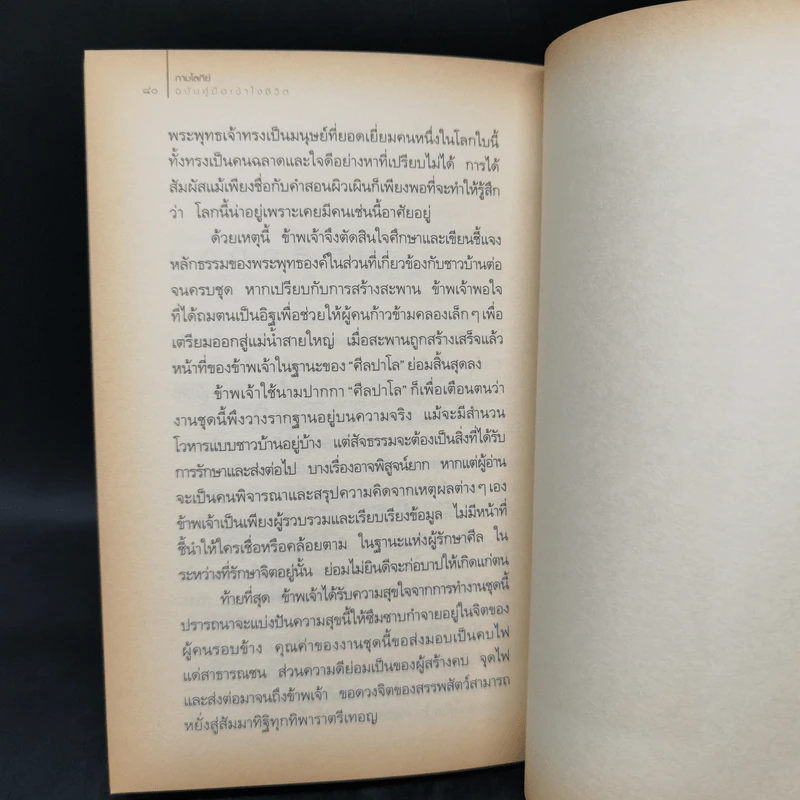 กามโลกีย์
๘๐
ฉบับคู่มือเข้าใจชีวิต
พระพุทธเจ้าทรงเป็นมนุษย์ที่ยอดเยี่ยมคนหนึ่งในโลกใบนี้
ทั้งทรงเป็นคนฉลาดและใจดีอย่างหาที่เปรียบไม่ได้ การได้
สัมผัสแม้เพียงชื่อกับคำสอนผิวเผินก็เพียงพอที่จะทำให้รู้สึก
ว่า โลกนี้น่าอยู่เพราะเคยมีคนเช่นนี้อาศัยอยู่
ด้วยเหตุนี้ ข้าพเจ้าจึงตัดสินใจศึกษาและเขียนชี้แจง
หลักธรรมของพระพุทธองค์ในส่วนที่เกี่ยวข้องกับชาวบ้านต่อ
จนครบชุด หากเปรียบกับการสร้างสะพาน ข้าพเจ้าพอใจ
ที่ได้ถมตนเป็นอิฐเพื่อช่วยให้ผู้คนก้าวข้ามคลองเล็ก ๆ เพื่อ
เตรียมออกสู่แม่น้ำสายใหญ่ เมื่อสะพานถูกสร้างเสร็จแล้ว
หน้าที่ของข้าพเจ้าในฐานะของ “ศีลปาโล” ย่อมสิ้นสุดลง
ข้าพเจ้าใช้นามปากกา “ศีลปาโล” ก็เพื่อเตือนตนว่า
งานชุดนี้พึงวางรากฐานอยู่บนความจริง แม้จะมีสำนวน
โวหารแบบชาวบ้านอยู่บ้าง แต่สัจธรรมจะต้องเป็นสิ่งที่ได้รับ
การรักษาและส่งต่อไป บางเรื่องอาจพิสูจน์ยาก หากแต่ผู้อ่าน
จะเป็นคนพิจารณาและสรุปความคิดจากเหตุผลต่าง ๆ เอง
ข้าพเจ้าเป็นเพียงผู้รวบรวมและเรียบเรียงข้อมูล ไม่มีหน้าที่
ชี้นำให้ใครเชื่อหรือคล้อยตาม ในฐานะแห่งผู้รักษาศีล ใน
ระหว่างที่รักษาจิตอยู่นั้น ย่อมไม่ยินดีจะก่อบาปให้เกิดแก่ตน
ท้ายที่สุด ข้าพเจ้าได้รับความสุขใจจากการทำงานชุดนี้
ปรารถนาจะแบ่งปันความสุขนี้ให้ซึมซาบกำจายอยู่ในจิตของ
ผู้คนรอบข้าง คุณค่าของงานชุดนี้ขอส่งมอบเป็นคบไฟ
แด่สาธารณชน ส่วนความดีย่อมเป็นของผู้สร้างคบ จุดไฟ
และส่งต่อมาจนถึงข้าพเจ้า ขอดวงจิตของสรรพสัตว์สามารถ
หยั่งสู่สัมมาทิฐิทุกทิพาราตรีเทอญ